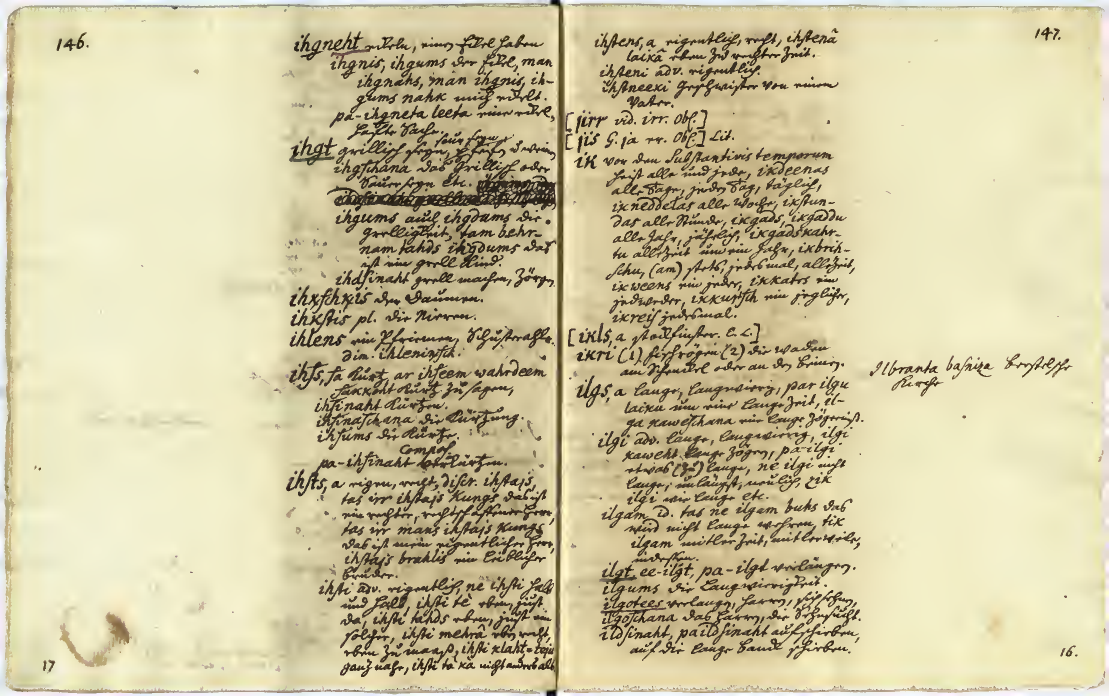 146.
ihgneht ekeln, einen Ekel haben
ihgnis, ihgums der Ekel, man
ihgnahs, man ihgnis, ih-
gums nahk mich ekelt.
pa-ihgneta leeta eine ekel-
hafte Sache
ihgt grillisch seyn, sauer seyn
ihgschana das Grillisch oder
Sauerseyn etc.
ihgums auch ihgdums die
Grelligkeit, tam behr-
nam tahds ihgdums das
ist ein grell Kind.
ihdsinaht grell machen, Zörgen
ihkschkis der Daumen.
ihkstis pl. die Nieren.
ihlens ein Pfriemen, Schusterahle.
dim. ihleninsch.
ihss, sa Kurtz, ar ihseem wahrdeem
sakkoht Kurtz zu sagen,
ihsinaht Kürtzen.
ihsinaschana die Kürtzung.
ihsums die Kürtze.
Compos.
pa-ihsinaht verkürtzen.
ihsts, a eigen, recht, discr. ihstajs,
tas irr ihstajs Kungs das ist
ein rechter, rechtschaffener Herr,
tas irr mans ihstajs kungs
das ist mein eigentlicher Herr,
ihstajs brahlis ein leiblicher
bruder.
ihsti adv. eigentlich, ne ihsti halb
und halb, ihsti te eben, just
da, ihsti tahds eben, just ein
solcher, ihsti mehrâ eben recht,
eben zu maaß, ihsti klaht
ganz nahe, ihsti tà kà nicht anders als
17
147.
ihstens, a eigentlich, recht, ihstenâ
laikâ eben zu rechter Zeit.
ihsteni adv. eigentlich.
ihstneexi Geschwister von einem
Vater.
[jirr vid. irr. Obs.]
[jis G. ja er. Obs.] Lit.
ik vor den Substantivis temporum
heist alle und jede, ikdeenas
alle Tage, jeden Tag, täglich,
ikneddelas alle Woche, ikstun-
das alle Stunde, ikgads, ikgaddu
alle Jahr, jährlich, ikgadskahr-
tu allezeit um ein Jahr, ikbrih-
schu, (am) stets, jedesmal, allezeit,
ikweens ein jeder, ikkatrs ein
jedweder, ikkursch ein jeglicher,
ikreis jedesmal.
[ikls, a stockfinster. C. L.]
ikri (1) fischrögen (2) die waden
am Schenkel oder an den Beinen.
ilgs, a lange, langwierig, par ilgu
laiku um eine lange Zeit, il-
ga kaweschana eine lange Zögerniß.
ilgi adv. lange, langwierig, ilgi
kaweht lange Zögern, pa-ilgi
etwas (zu) lange, ne ilgi nicht
lange, unlängst, neulich, zik
ilgi wie lange etc.
ilgam id. tas ne ilgam buhs das
wird nicht lange wehren, tik
ilgam mitler Zeit, mitlerweile,
indessen.
ilgt, ee-ilgt, pa-ilgt verlängern.
ilgums die Langwierigkeit.
ilgotees verlangen, harren, sich sehnen,
ilgoschana das Harren, die Sehnsucht.
ildsinaht, paildsinaht aufschieben,
auf die lange Banck schieben.
Ilbranta basniza Bersteltsche
Kirche
16.